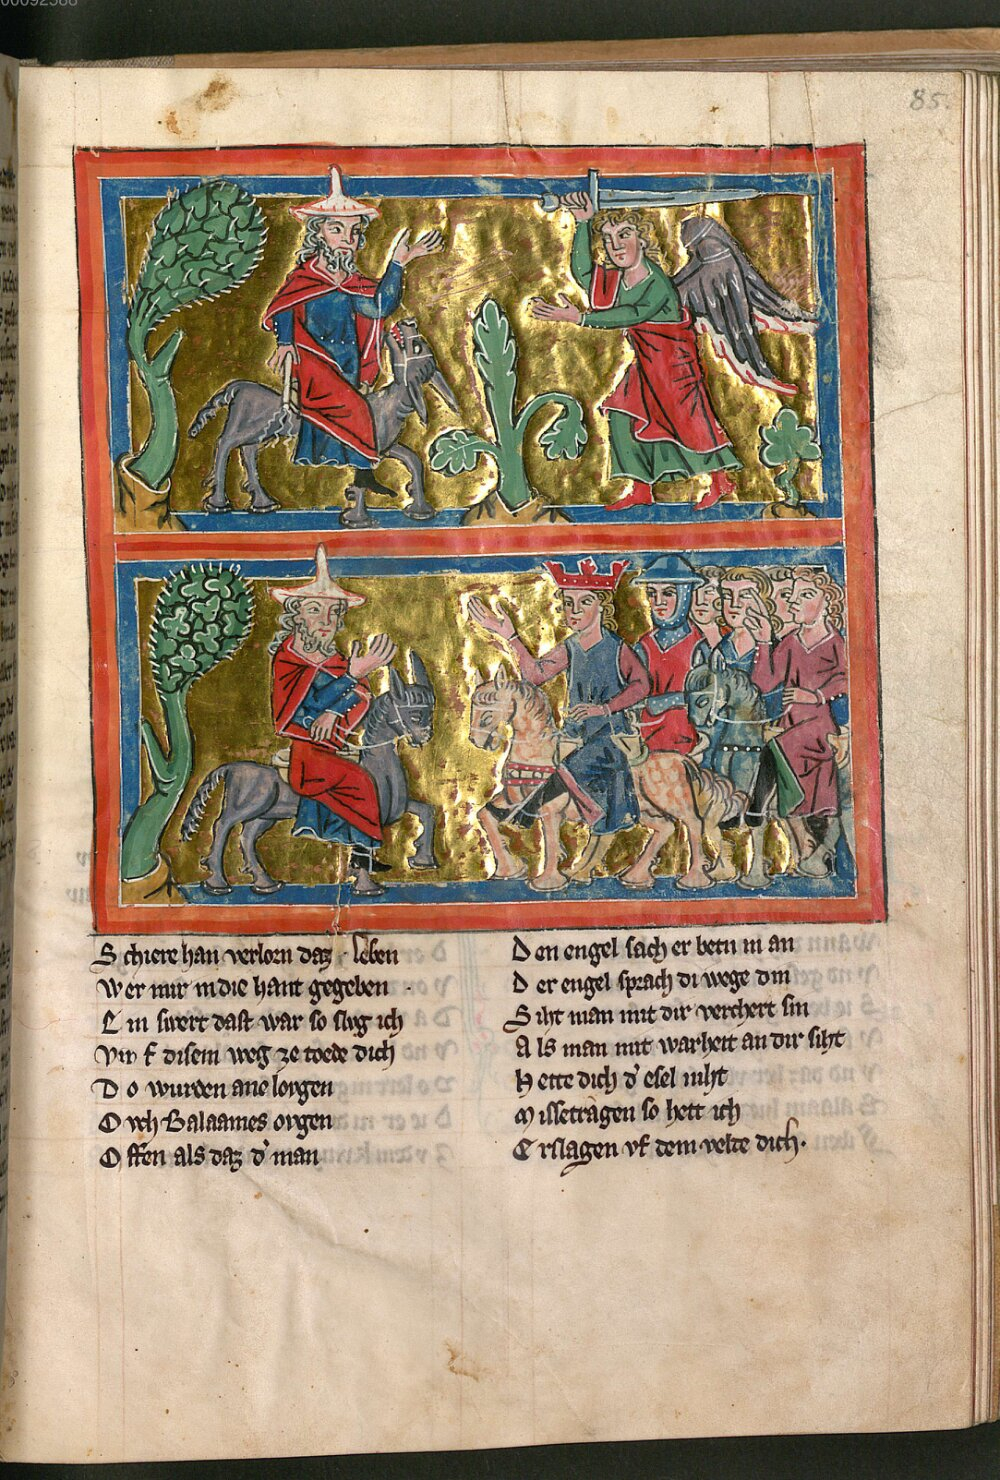 00092588
85.
Schiere han verlorn daz leben
Wer mir in die hant gegeben
Ein swert dast war so slvg ich
Vf disem weg ze tode dich
Do wurden ane sorgen
Ovch Balaames ovgen
Offen als daz d' man
Den engel sach er betn in an
Der engel sprach di wege din
Siht man mit dir verchert sin
Als man mit warheit an dir siht
Hette dich d' esel niht
Missetragen so hett ich
Erslagen vf dem velde dich.